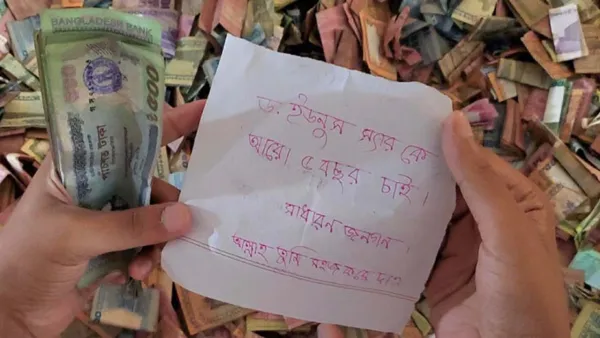 BANGLADESH BANK
৫০০
পাঁচশত টাকা
ড. ইউনুস স্যার কে
আরো ৫ বছর চাই।
সাধারন জনগন।
আল্লাহ তুমি সহজ করে দাও